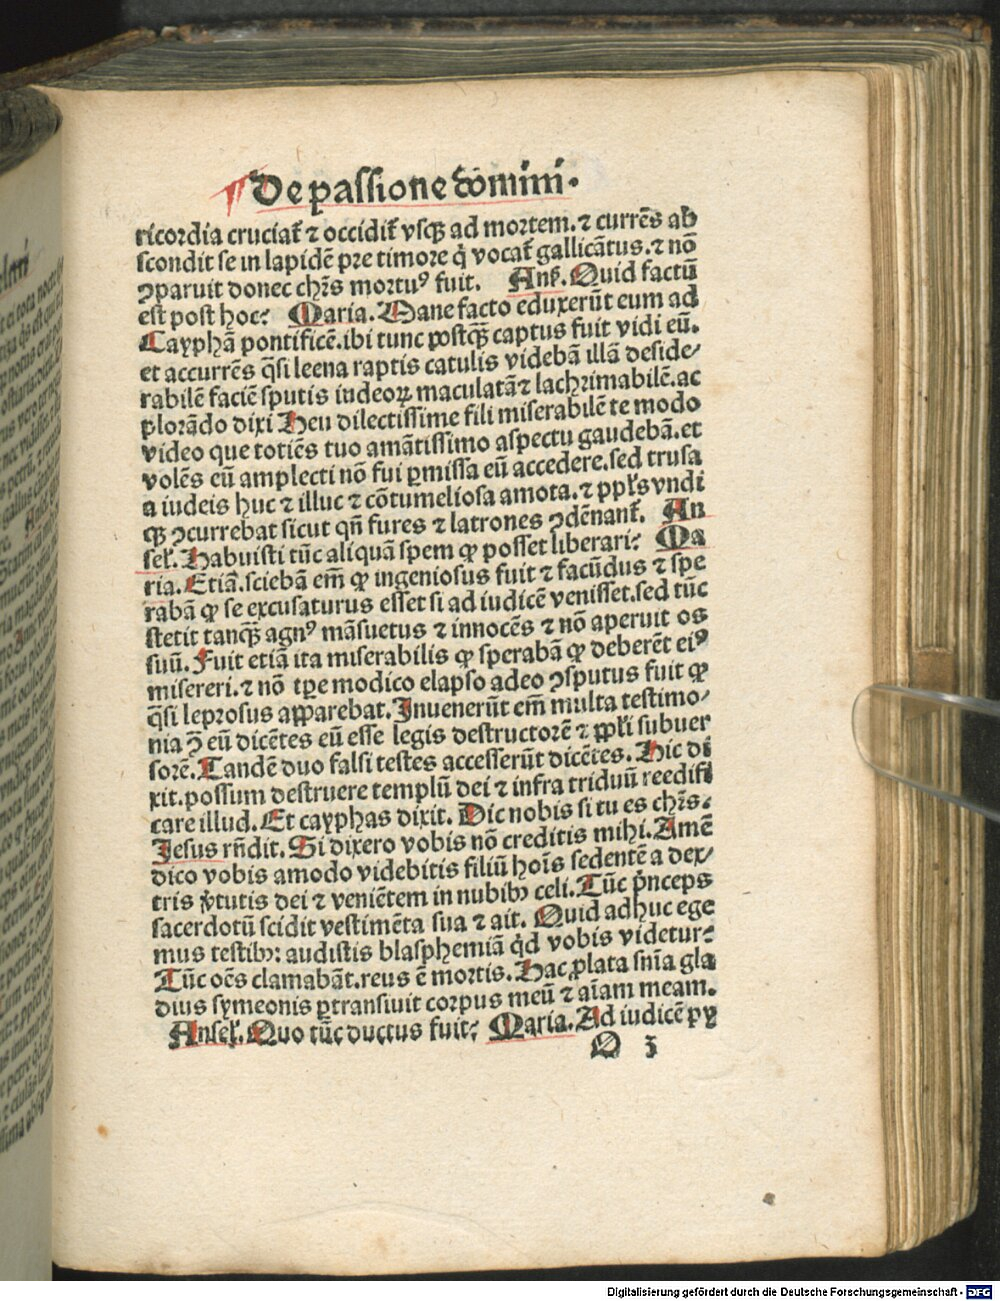 De passione dōmini.
ricordia cruciat᷑ ⁊ occidit᷑ vsqꝫ ad mortem.⁊ currēs ab
scondit se in lapidē pre timore q̇ vocat᷑ gallicātus.⁊ nō
ꝯparuit donec chr̄s mortuꝰ fuit. Anſ. Quid factū
est post hoc? Maria. Mane facto eduxerūt eum ad
Cayphā pontificē.ibi tunc postqꝫ̄ captus fuit vidi eū.
et accurrēs q̄si leena raptis catulis videbā illā deside⸗
rabilē faciē sputis iudeoꝝ maculatā ⁊ lachrimabilē.ac
plorādo dixi Heu dilectissime fili miserabilē te modo
video que totiēs tuo amātissimo aspectu gaudebā.et
volēs eū amplecti nō fui ꝑmissa eū accedere.sed trusa
a iudeis huc ⁊ illuc ⁊ cōtumeliosa amota.⁊ pplꝰs vndi
qꝫ ꝯcurrebat sicut qn̄ fures ⁊ latrones ꝯdēnant᷑. An
sel. Habuisti tūc aliquā spem ꝙ posset liberari? Ma
ria. Etiā.sciebā em̄ ꝙ ingeniosus fuit ⁊ facūdus ⁊ spe
rabā ꝙ se excusaturus esset si ad iudicē venisset.sed tūc
stetit tanqꝫ̄ agnꝰ māsuetus ⁊ innocēs ⁊ nō aperuit os
suū. Fuit etiā ita miserabilis ꝙ sperabā ꝙ deberēt eiꝰ
misereri.⁊ nō tp̄e modico elapso adeo ꝯsputus fuit ꝙ
q̄si leprosus apparebat. Inuenerūt em̄ multa testimo⸗
nia ꝯ̄ eū dicētes eū esse legis destructorē ⁊ ppl̄i subuer
sorē. Tandē duo falsi testes accesserūt dicētes. Hic di
xit.possum destruere templū dei ⁊ infra triduū reedifi
care illud. Et cayphas dixit. Dic nobis si tu es chr̄s.
Jesus rn̄dit. Si dixero vobis nō creditis mihi. Amē
dico vobis amodo videbitis filiū hoīs sedentē a dex⸗
tris v̇tutis dei ⁊ veniētem in nubibꝫ celi. Tūc pͥnceps
sacerdotū scidit vestimēta sua ⁊ ait. Quid adhuc ege
mus testibꝫ: audistis blasphemiā qͥd vobis videtur?
Tūc oēs clamabāt.reus ē mortis. Hac ꝓlata sn̄ia gla
dius symeonis ꝑtransiuit corpus meū ⁊ aīam meam.
Ansel. Quo tūc ductus fuit? Maria. Ad iudicē py
O 3
Digitalisierung gefördert durch die Deutsche Forschungsgemeinschaft - DFG